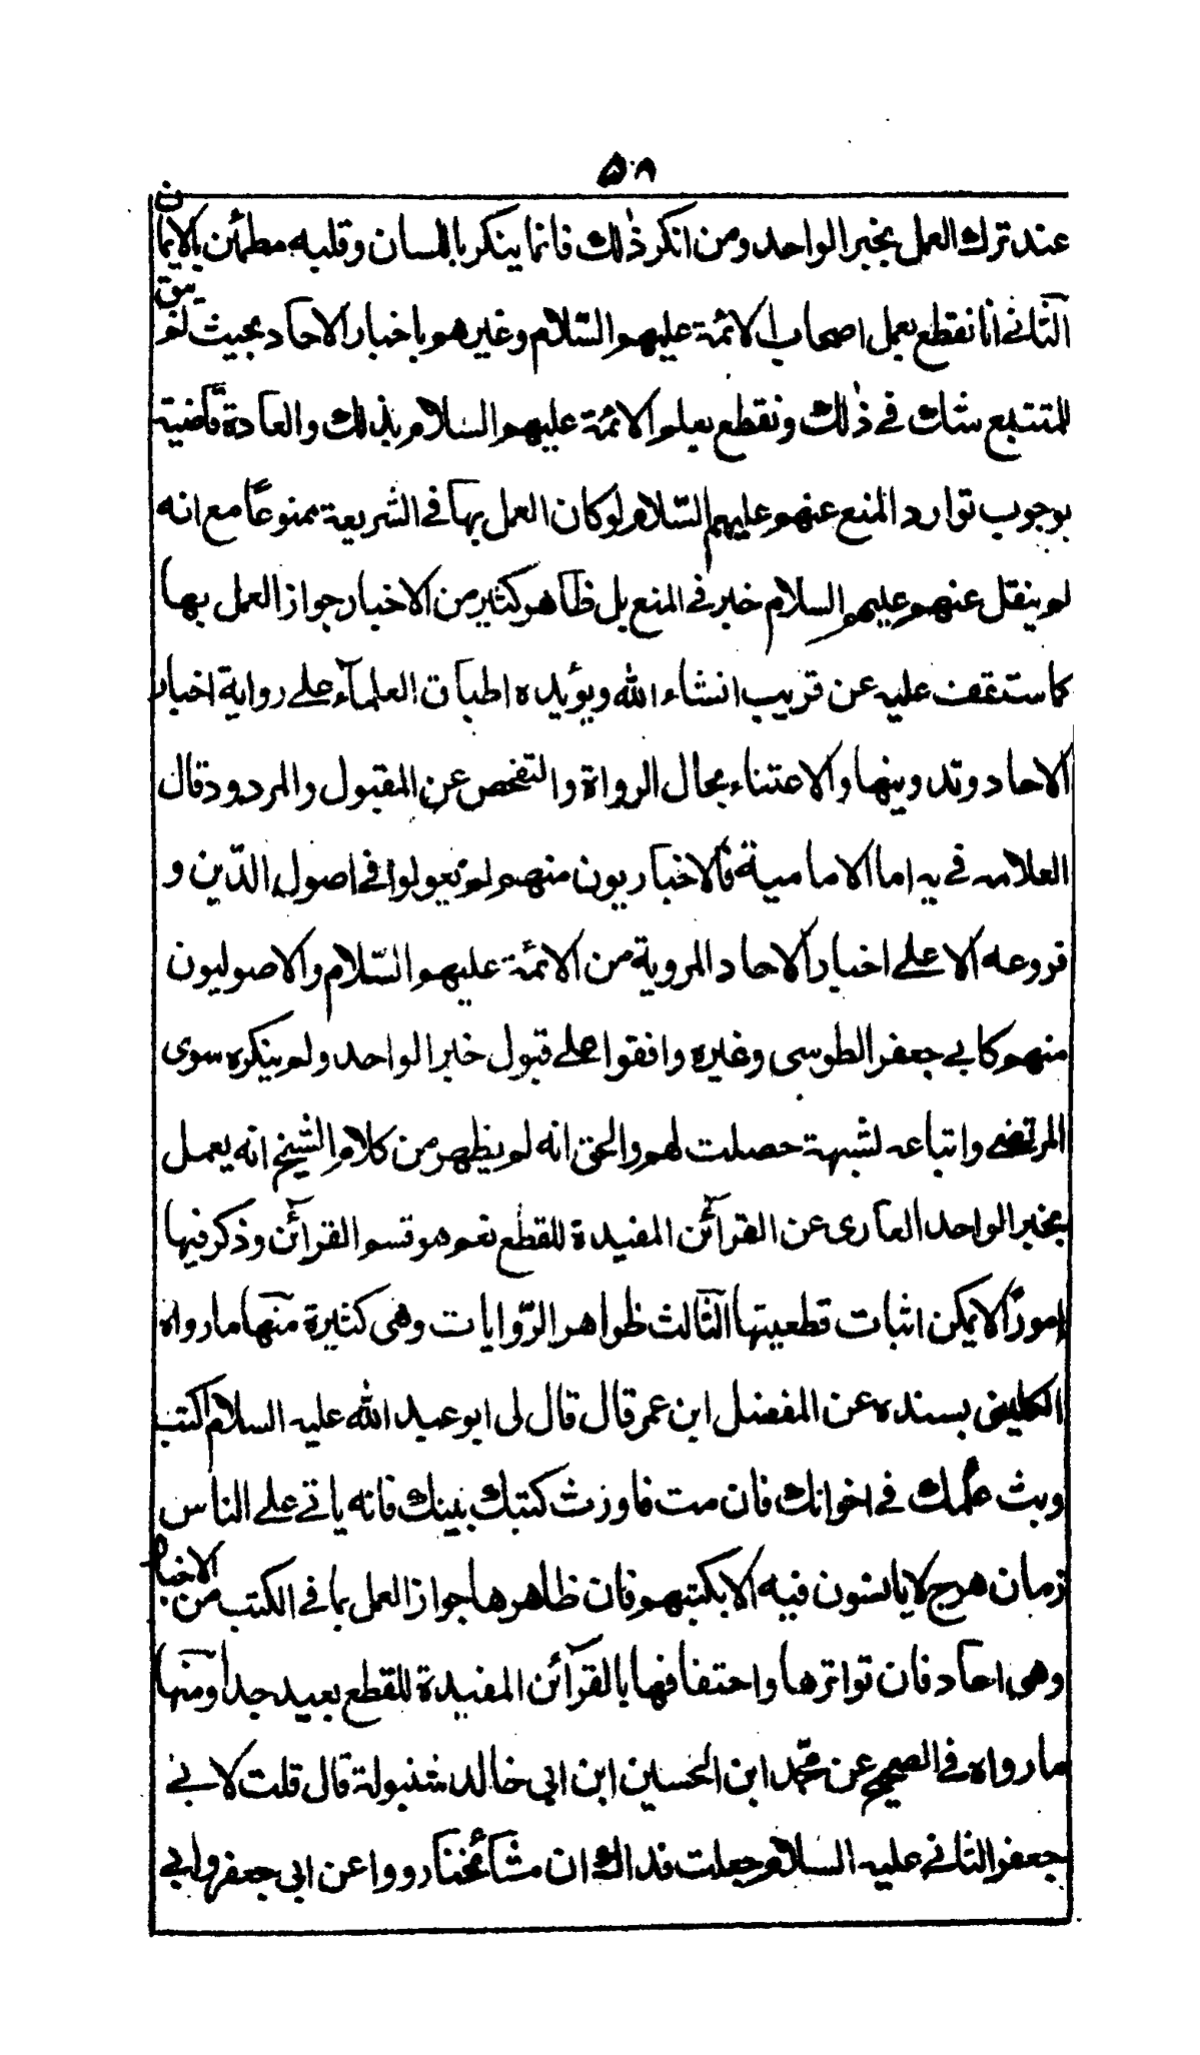 ٥٨
عند ترك العمل بخبر الواحد ومن انكر ذلك فانما ينكر باللسان وقلبه مطمئن بالايمان
الثانى انا نقطع بعمل اصحاب الائمة عليهم السّلام وغيرهم باخبار الاحاد بحيث لم يبق
للمتتبع شك فى ذلك ونقطع بعلم الائمة عليهم السلام بذلك والعادة قاضية
بوجوب توارد المنع عنهم عليهم السّلام لو كان العمل بها فى الشريعة ممنوعًا مع انه
لم ينقل عنهم عليهم السلام خبر فى المنع بل ظاهر كثير من الاخبار جواز العمل بها
كما ستقف عليه عن قريب انشاء الله ويؤيده اطباق العلمآء على رواية اخبار
الاحاد وتدوينها والاعتناء بحال الرواة والتفحص عن المقبول والمردود قال
العلامه فى يه اما الامامية فالاخباريون منهم لم يعولوا فى اصول الدّين و
فروعه الا على اخبار الاحاد المروية من الائمة عليهم السّلام والاصوليون
منهم كابى جعفر الطوسى وغيره وافقوا على قبول خبر الواحد ولم ينكره سوى
المرتضى واتباعه لشبهة حصلت لهم والحق انه لم يظهر من كلام الشيخ انه يعمل
بخبر الواحد العارى عن القرآئن المفيدة للقطع نعم هو قسم القرآئن وذكر فيها
امورًا لا يمكن اثبات قطعيتها الثالث ظواهر الرّوايات وهى كثيرة منها ما رواه
الكلينى بسنده عن المفضل ابن عمر قال قال لى ابو عبد الله عليه السلام اكتب
وبث علمك فى اخوانك فان مت فاورث كتبك بنيك فانه ياتى على الناس
زمان هرج لا يانسون فيه الا بكتبهم فان ظاهرها جواز العمل بما فى الكتب من الاخبار
وهى احاد فان تواترها واحتفافها بالقرآئن المفيدة للقطع بعيد جدا ومنها
ما رواه فى الصحيح عن محمّد ابن الحسين ابن ابى خالد شنبولة قال قلت لابى
جعفر الثانى عليه السلام جعلت فداك ان مشائخنا رووا عن ابى جعفر وابى